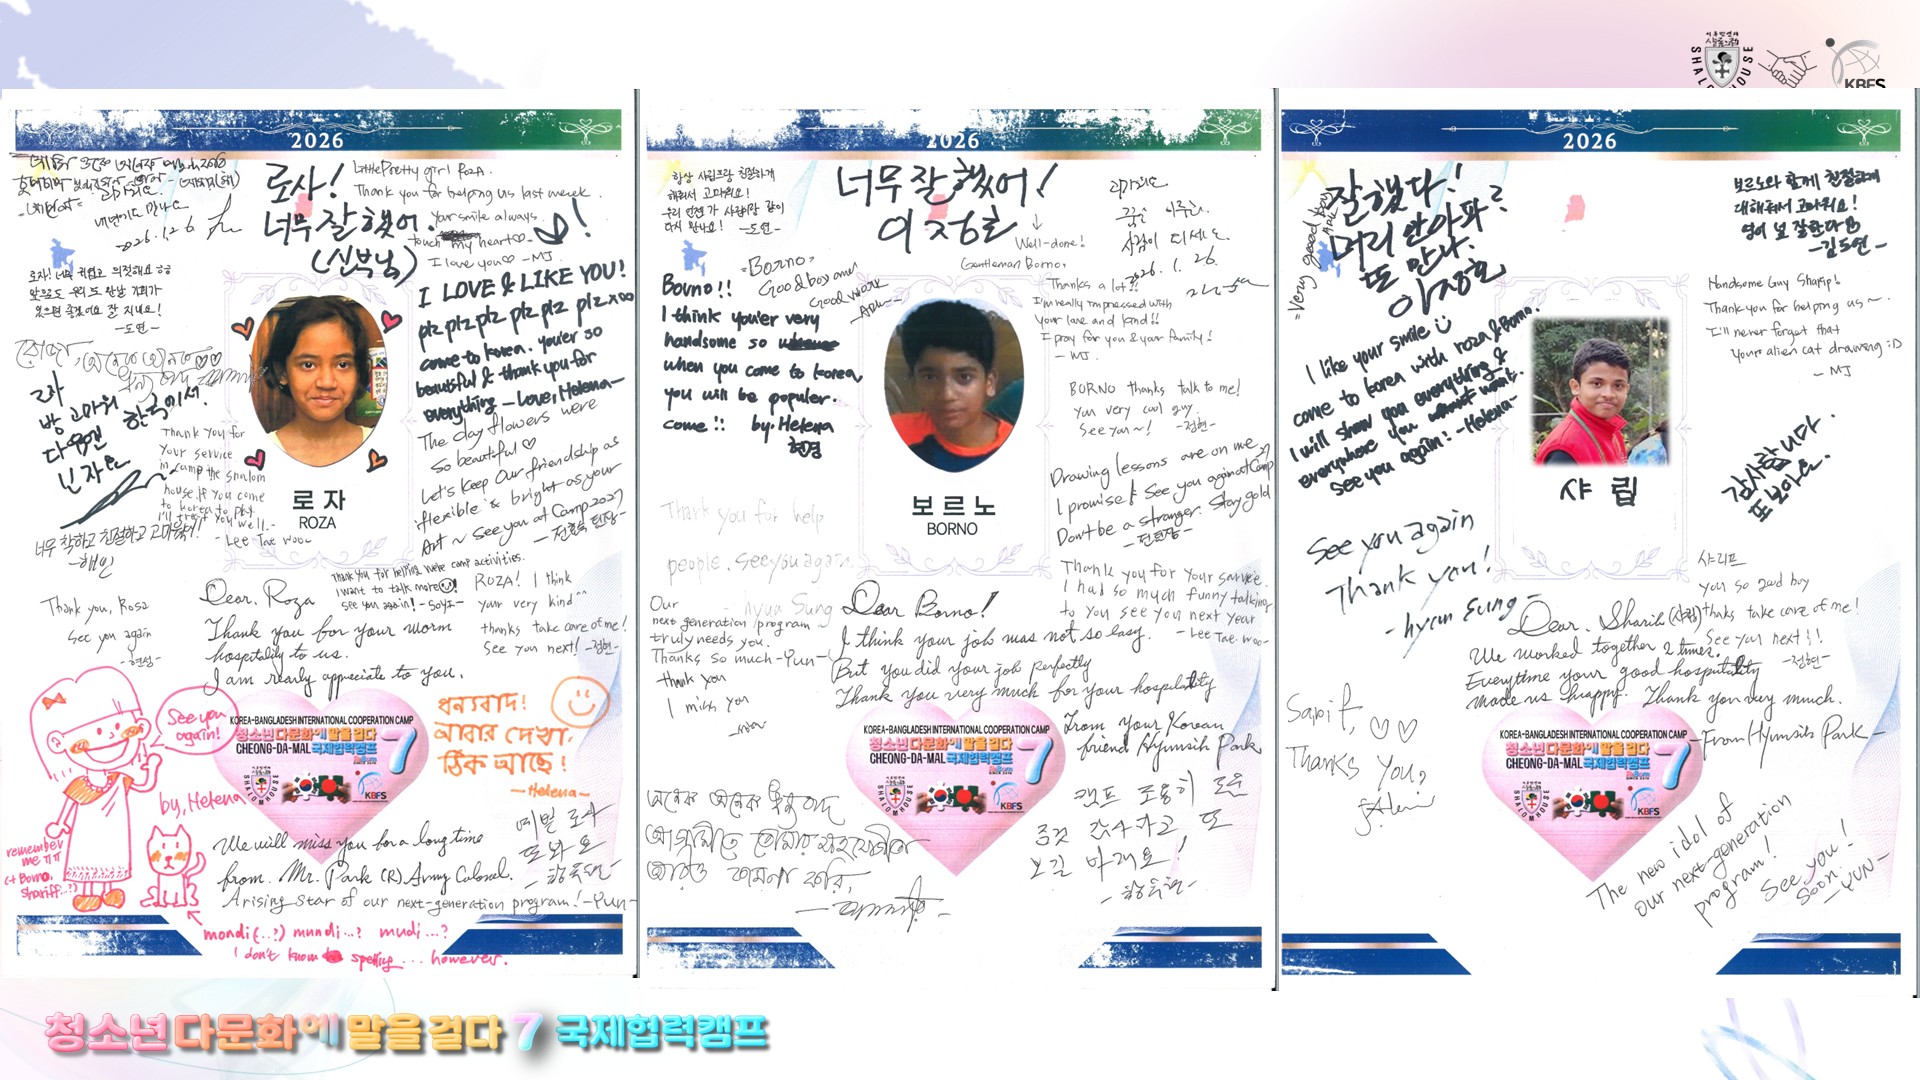 이주민센터
살롬의집
SHALOM HOUSE
KBFS
2026
로사!
너무 잘했어.
(신부님)
Little Pretty girl ROZA.
Thank you for helping us last week.
Your smile always
touch my heart♡
I love you♡ -MJ
2026.1.26
로자! 너무 귀엽고 의젓해요 ㅎㅎ
앞으로도 우리 또 만날 기회가
있으면 좋겠어요 잘 지내요!
-도연-
I LOVE & LIKE YOU!
plz plz plz plz plz plz x∞
come to korea. you'er so
beautiful & thank you for
everything - Love, Helena-
로자
방 고마워
다음엔 한국에서.
Thank you for
your service
in camp the shalom
house. if you come
to korea to play
I'll treat you well.
- Lee Tae woo-
The day flowers were
so beautiful♡
Let's keep our friendship as
flexible & bright as your
Art ~ see you at Camp 2027
로 자
ROZA
너무 착하고 친절하고 고마웠어!
-해인
Thank you, Rosa
see you again
-현성-
Dear. Roza
Thank you for your worm
hospitality to us.
I am realy appreciate to you.
Thank you for helping we're camp activities.
I want to talk more
see you again! -soyi-
ROZA! I think
your very kind^^
thanks take care of me!
See you next! -정현-
See you
again!
by, Helena
remember
me ㅠㅠ
(+ Borno,
shariff..?)
ধন্যবাদ!
আবার দেখা,
ঠিক আছে!
-Helena-
KOREA-BANGLADESH INTERNATIONAL COOPERATION CAMP
청소년 다문화에 말을 걸다
CHEONG-DA-MAL 국제협력캠프
7
SHALOM HOUSE
KBFS
We will miss you for a long time
from. Mr. Park (R) Army Colonel.
A rising star of our next-generation program! -Yun-
mondi(..?) mundi...? mudi...?
I don't know spelling ... however.
2026
항상 사립프랑 친절하게
해줘서 고마워요!
다시 만나요! -도연-
너무 잘했어!
이정호
Well-done!
Gentleman Borno.
2026. 1. 26.
-Borno-
Good boy and
Good work
Borno!!
I think you'er very
handsome so
when you come to korea
you will be populer.
come!! by. Helena
현경
Thanks a lot!!
I'm really impressed with
your love and kind!!
I pray for you & your family!
- MJ.
BORNO thanks talk to me!
you very cool guy.
see you~! -정현-
Drawing lessons are on me
I promise! See you again at Camp
Don't be a stranger. Stay gold
보르노
BORNO
Thank you for help
people. see you again.
- hyun Sung
Our
next generation program
truly needs you.
Thanks so much -Yun-
thank you
I miss you
Thank you for your service.
I had so much funny talking
to you see you next year
- Lee Tae-woo-
Dear Borno!
I think your job was not so easy.
But you did your job perfectly
Thank you very much for your hospitality
From your Korean
friend Hyunsih Park
KOREA-BANGLADESH INTERNATIONAL COOPERATION CAMP
청소년 다문화에 말을 걸다
CHEONG-DA-MAL 국제협력캠프
7
SHALOM HOUSE
KBFS
2026
"Very good boy"
잘했다!
머리 안아파?
또 만나.
이정호
보르노와 함께 친절하게
대해줘서 고마워요!
영어 넘 잘한다
-김도연-
Handsome Guy Sharip!
Thank you for helping us~.
I'll never forget that
your alien cat drawing :D
- MJ
I like your smile
come to korea with roza & Borno.
I will show you everything &
everywhere you want.
see you again! -Helena-
감사합니다.
또 보아요.
샤 립
See you again
Thank you!
-hyun Sung-
샤리프
you so good boy
thanks take care of me!
See you next!!
-정현-
Dear. Sharib (샤립)
We worked together 2 times.
Everytime your good hospitality
made us happy. Thank you very much.
-From Hyunsih Park-
Sarif, ♡♡
Thanks you?
KOREA-BANGLADESH INTERNATIONAL COOPERATION CAMP
청소년 다문화에 말을 걸다
CHEONG-DA-MAL 국제협력캠프
7
SHALOM HOUSE
KBFS
The new idol of
our next-generation
program!
See you!
Soon.
-YUN-
청소년 다문화에 말을 걸다 7 국제협력캠프